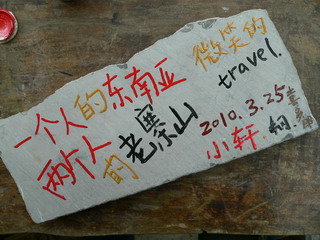 一个人的东南亚
两个人的老寨山
微笑的
travel.
2010.3.25
小轩